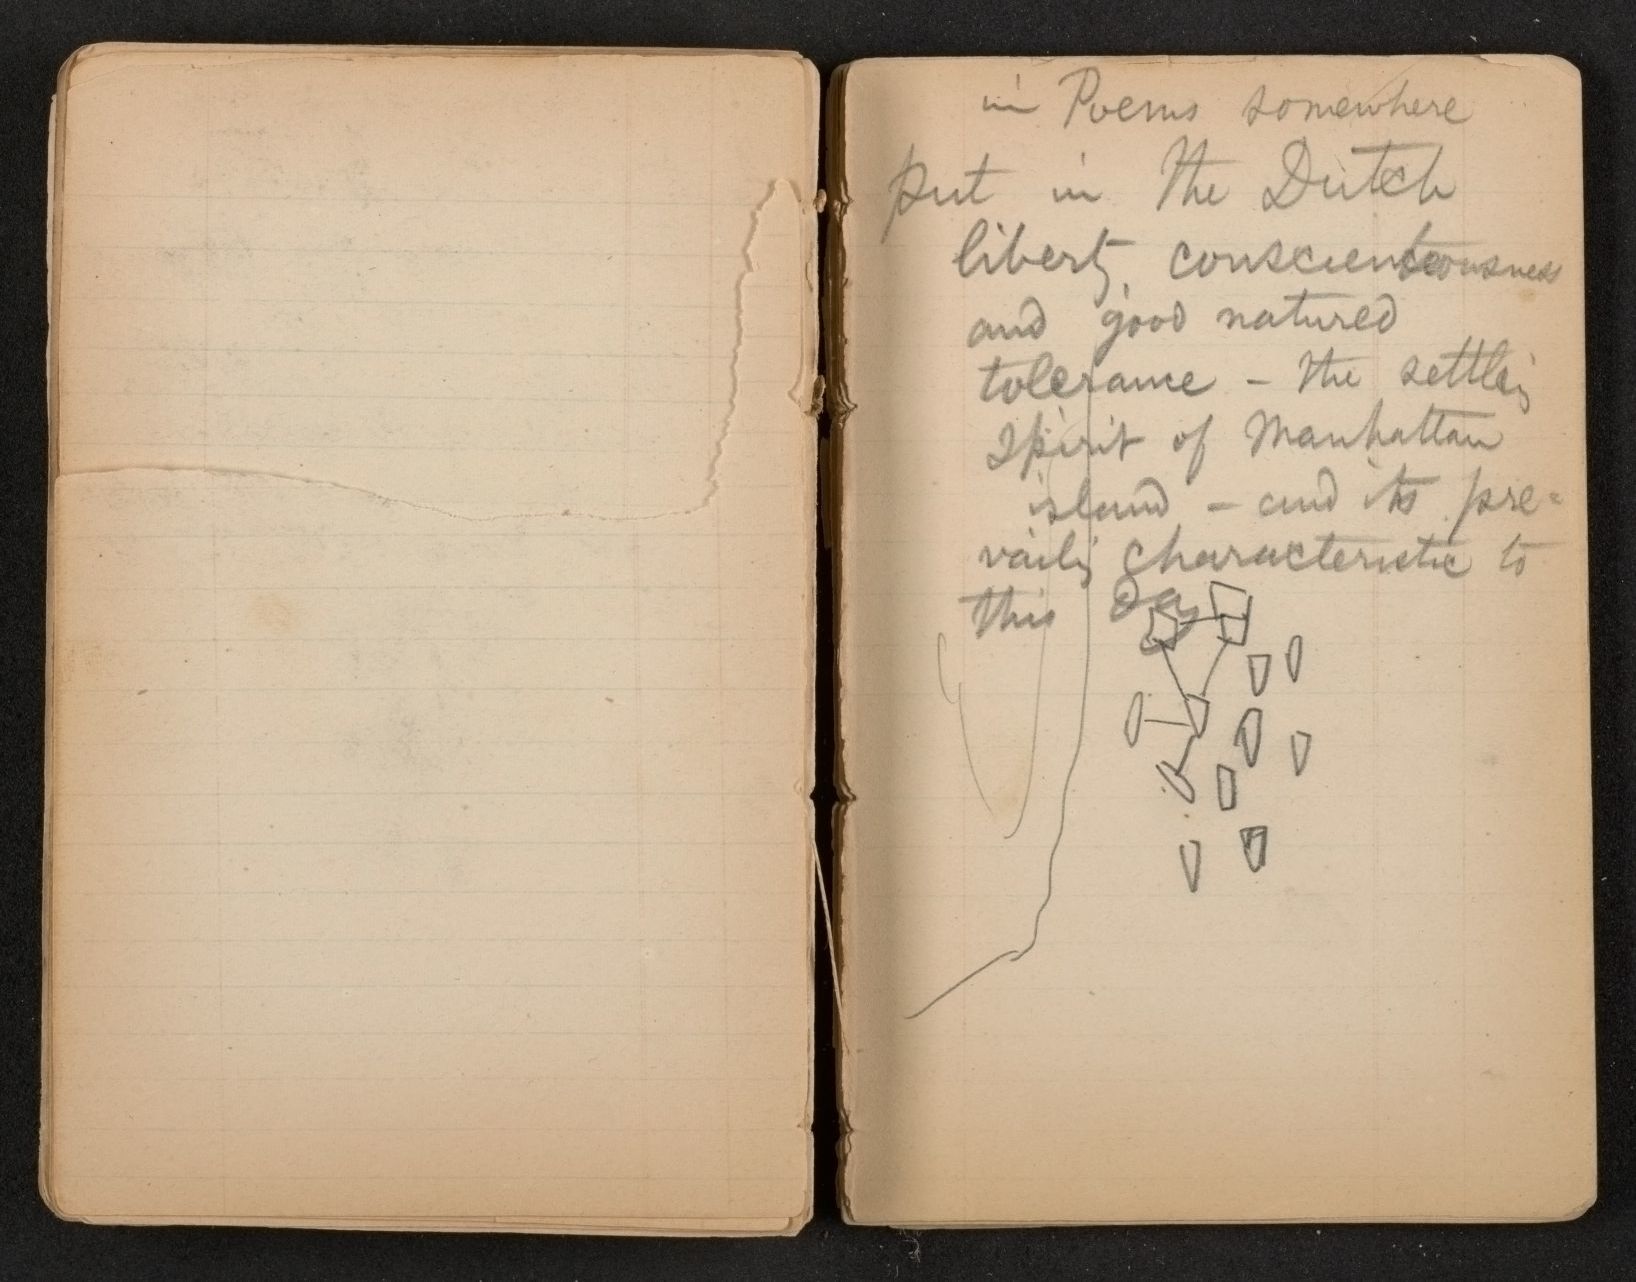 in Poems somewhere
put in the Dutch
liberty, conscientiousness
and good natured
tolerance – the settling
spirit of Manhattan
island – and its pre=
vailing characteristic to
this day